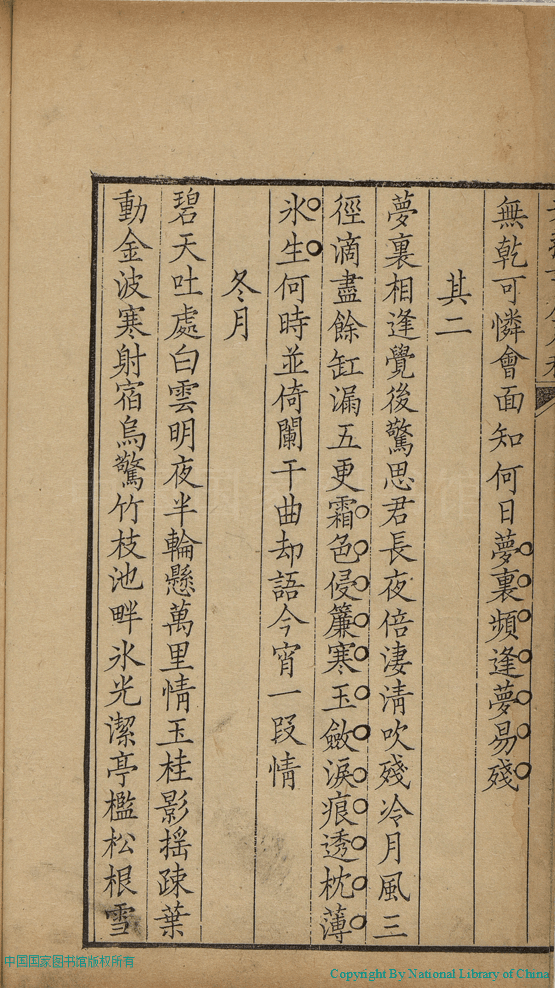 無乾可憐會面知何日夢裏頻逢夢易殘
其二
夢裏相逢覺後驚思君長夜倍淒淸吹殘冷月風三
徑滴盡餘缸漏五更霜色侵簾寒玉斂淚痕透枕薄
氷生何時並倚闌干曲却語今宵一段情
冬月
碧天吐處白雲明夜半輪懸萬里情玉桂影摇疎葉
動金波寒射宿烏驚竹枝池畔氷光潔亭檻松根雪
中国国家图书馆版权所有
Copyright By National Library of China